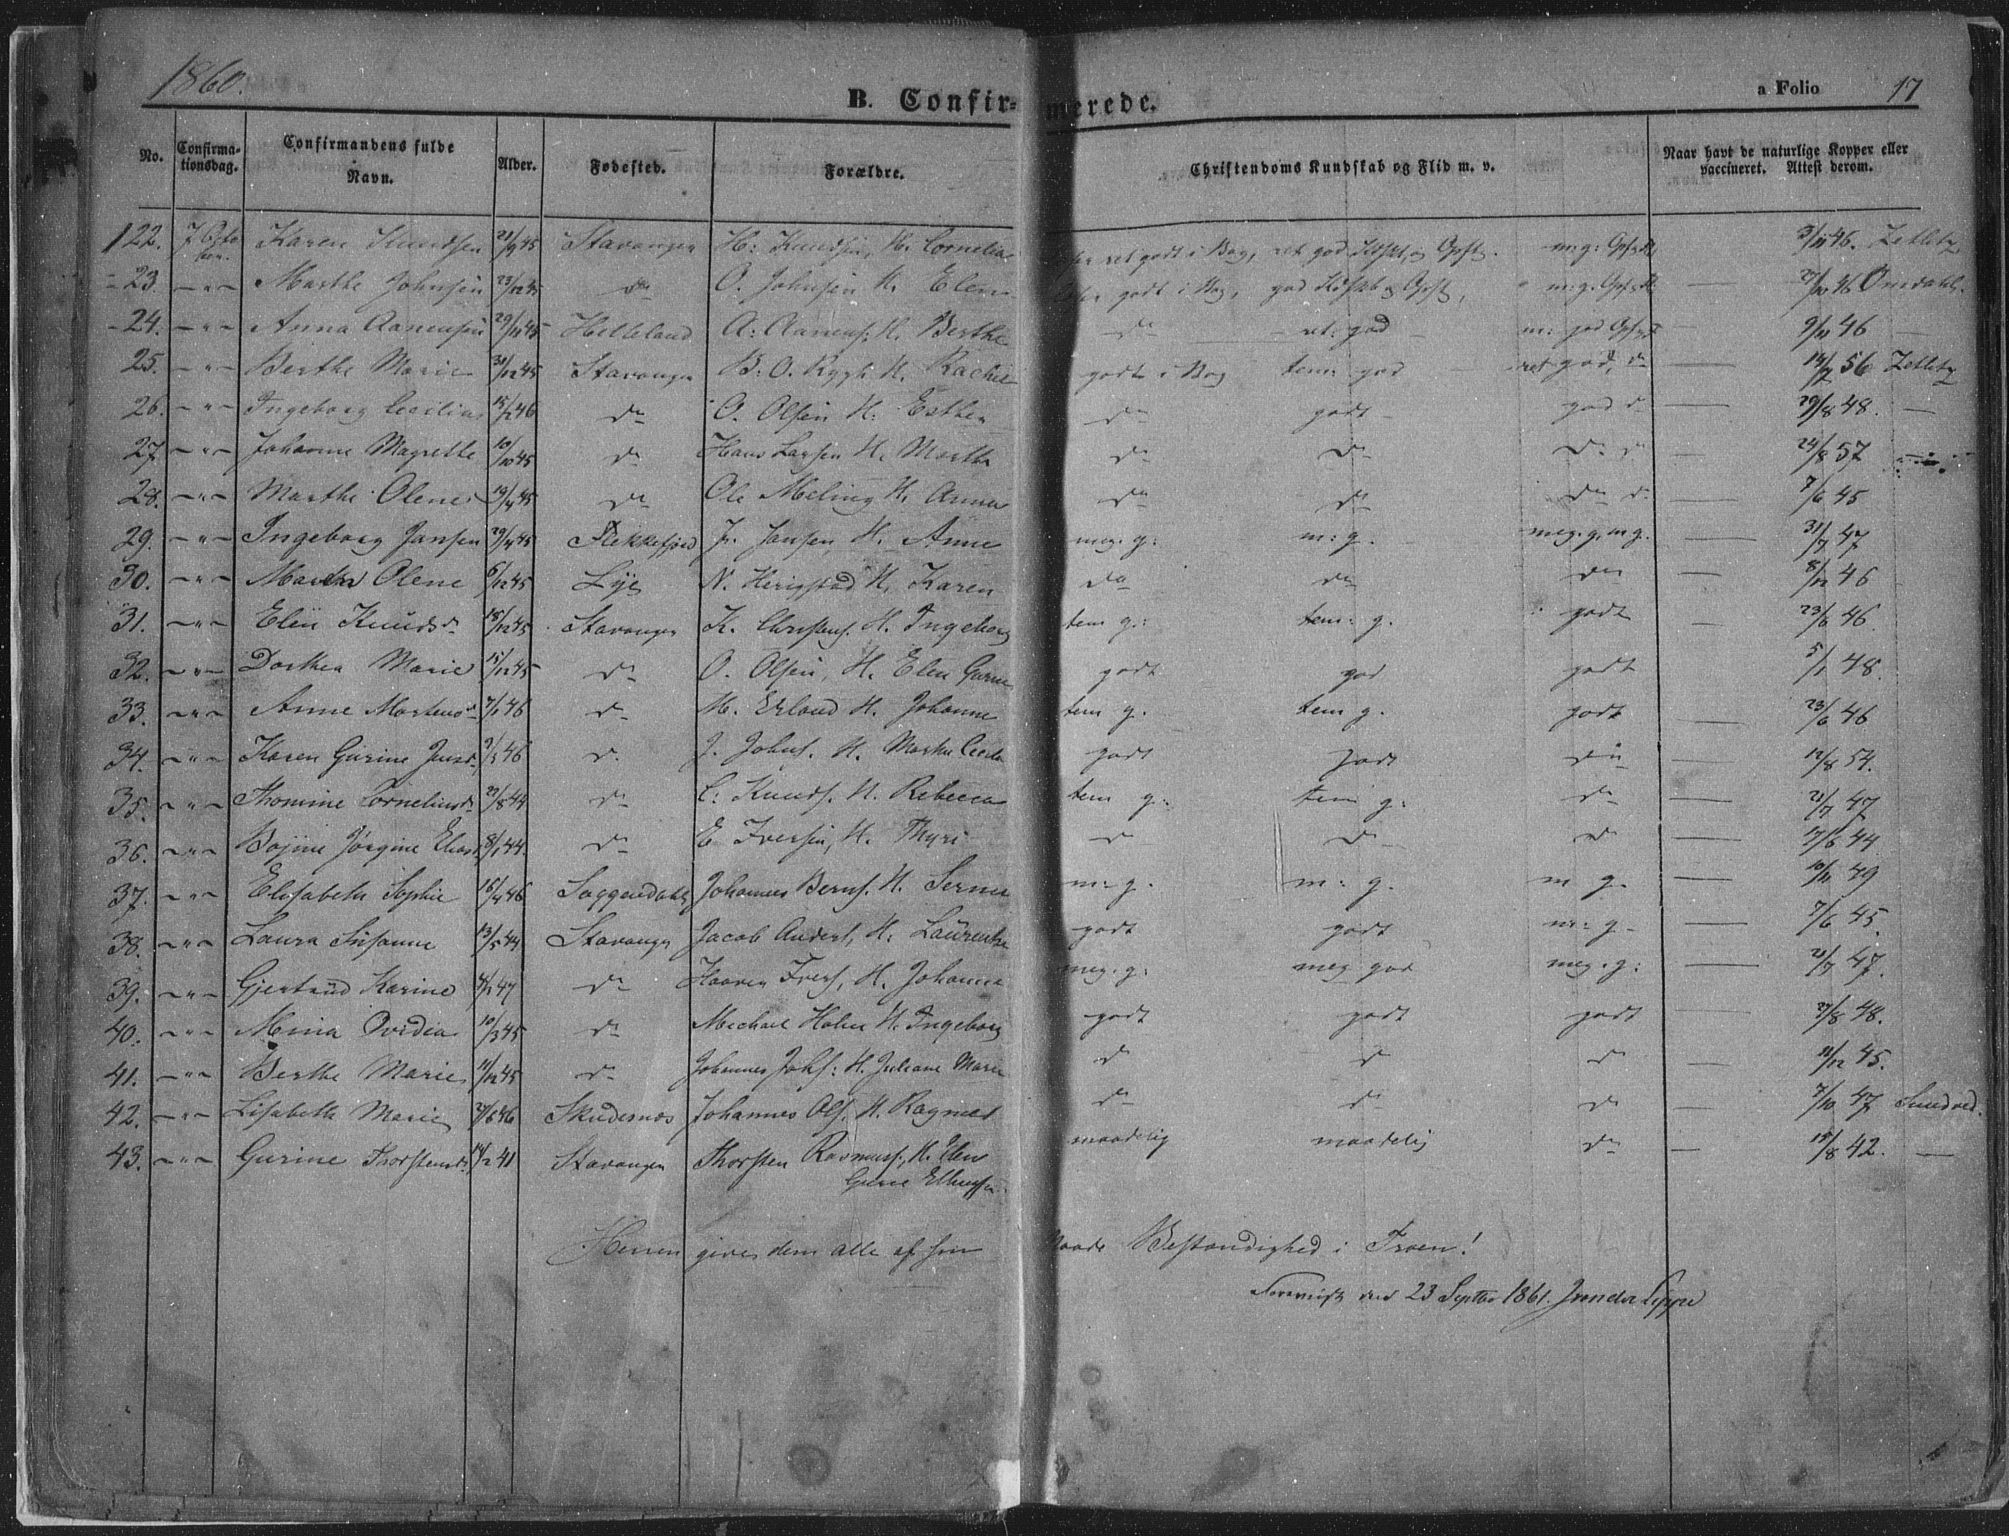 1860.
B. Confirmerede.
a Folio 17
No. Confirmationsdag. Confirmandens fulde Navn. Alder. Fødested. Forældre. Christendoms Kundskab og Flid m. v. Naar havt de naturlige Kopper eller vaccineret. Attest derom.
122. 7 October Karen Knudsen 21/9 45 Stavanger H: Knudsen, H. Cornelia ret godt i Bog, ret god m: g: 3/11 46. Zetlitz
- 23. - " - Marthe Johnsen 23/12 45 do O. Johnsen H. Elen godt i Bog, god m: g. 27/10 46 Omdahl.
- 24. - " - Anna Aanensen 29/11 45 Helleland A: Aanens. H. Berthe do ret god m: god 9/11 46 —
25. - " - Berthe Marie 31/12 45 Stavanger B. O. Rygh H. Rachel godt i Bog tem: god ret god, do 14/7 56 Zetlitz
26. - " - Ingeborg Cecilia 18/2 46 do O. Olsen H. Esther do godt god do 29/8 48. —
27. - " - Johanne Magrethe 10/10 45 do Hans Larsen H. Marthe do do do do 24/8 57
28. - " - Marthe Olene 19/4 45 do Ole Meling H. Anna do do do do 7/6 45
29. - " - Ingeborg Jansen 29/4 45 Flekkefjord J. Jansen H. Anne meg. g: m: g. meg. g. m g. 31/7 47
30. - " - Olene 6/12 45 Lye N. Herigstad H. Karen do do do 8/12 46
31. - " - Elen Knudsdr 18/12 45 Stavanger K. Christens. H. Ingeborg tem g.: tem: g. godt 23/6 46.
32. - " - Dorthea Marie 15/12 45 do O. Olsen, H. Elen Gurine godt god godt 5/1 48.
33. - " - Anne Martensdr 7/1 46 do M. Erland H. Johanne tem g. tem g. godt 23/6 46
34. - " - Karen Gurine Jensdr 9/3 46 do J. Johns. H. Marthe Cecilia godt godt do 12/8 54.
35. - " - Thomine Cornelius dr 23/8 44 do C: Knuds. H. Rebecca tem g: tem g: do 21/7 47
36. - " - Jørgine Eliasd 8/1 44. do E Iversen, H. Thyri do do do 7/6 44
37. - " - Elisabeth Sophie 16/4 46 Soggendahl Johannes Berns. H. Serine m: g. m: g. m g. 10/11 49
38. - " - Laura Susanne 13/5 44 Stavanger Jacob Anders, H. Laurentze godt godt m: g. 7/6 45.
39. - " - Gjertrud Karine 4/1 47 do Haaver Ivers, H. Johanna meg. g: meg god meg. g: 21/7 47.
40. - " - Mina Ovidia 10/3 45 do Michael Holen H. Ingeborg godt godt godt 7/8 48.
41. - " - Berthe Marie 11/12 45 do Johannes Johs: H. Juliane Marie do do do 11/12 45.
42. - " - Lisabeth Marie 21/6 46 Skudesnæs Johannes Ols. H. Ragnild do do do 7/10 47 Smedvd.
43. - " - Gurine Thorstensdr 14/2 41 Stavanger Thorsten Rasmuss, H. Elen maadelig maadelig do 15/8 42. —
Herren give dem alle af sin Naade Bestandighed i Troen!
den 23 Septbr 1861.